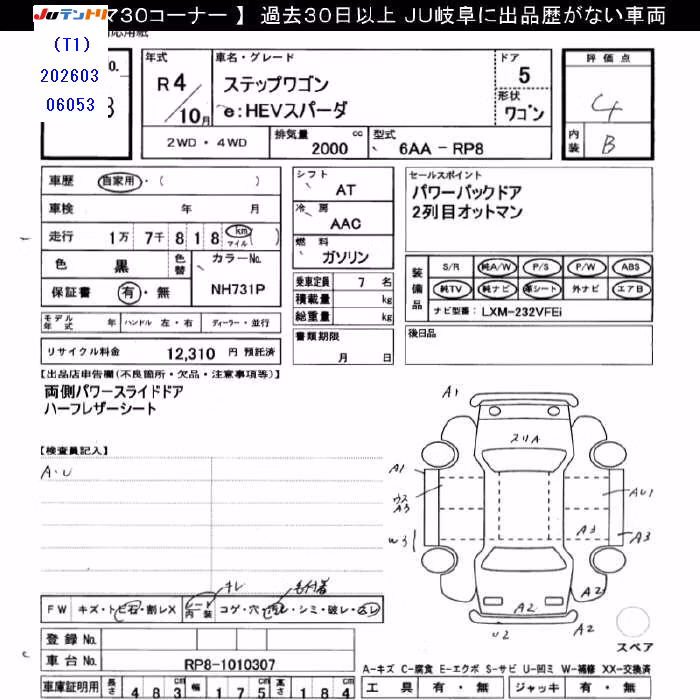 JUテントリ 730コーナー 】 過去30日以上 JU岐阜に出品歴がない車両
(T1)
202603
06053
No.
3
年式
R4/10月
車名・グレード
ステップワゴン
e:HEVスパーダ
ドア
5
形状
ワゴン
評価点
4
内装
B
2WD・4WD
排気量
2000 cc
型式
6AA-RP8
車歴 自家用・( )
車検 年 月
走行 1万 7千 8 1 8 km マイル ( )
色 黒 色替 カラーNo.
保証書 有・無 NH731P
モデル年式 年 ハンドル 左・右 ディーラー・並行
リサイクル料金 12,310 円 預託済
シフト
AT
冷房
AAC
燃料
ガソリン
乗車定員 7 名
積載量 kg
総重量 kg
書類期限
月 日
セールスポイント
パワーバックドア
2列目オットマン
装備品
S/R 純A/W P/S P/W ABS
純TV 純ナビ 革シート 外ナビ エアB
ナビ型番: LXM-232VFEi
後日品
【出品店申告欄(不良箇所・欠品・注意事項等)】
両側パワースライドドア
ハーフレザーシート
【検査員記入】
A・U
FW キズ・トビ石・割レX
内装 コゲ・穴・汚レ・シミ・破レ・凸レ
キレ
登録No.
車台No. RP8-1010307
車庫証明用 長さ 483 cm 幅 175 cm 高さ 184 cm
A1
スリA
A1
ウスA3
W3
AU1
A3
A3
A2
A2
A2
U2
スペア
A-キズ C-腐食 E-エクボ S-サビ U-凹ミ W-補修 XX-交換済
工具 有・無 ジャッキ 有・無